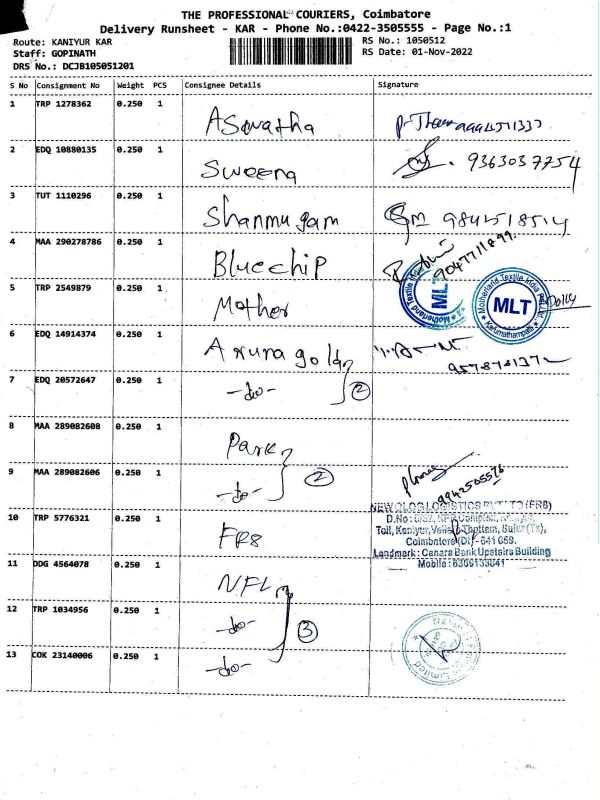 THE PROFESSIONAL COURIERS, Coimbatore
Delivery Runsheet - KAR - Phone No.:0422-3505555 - Page No.:1
Route: KANIYUR KAR
RS No.: 1050512
Staff: GOPINATH
RS Date: 01-Nov-2022
DRS No.: DCJB105051201
S No Consignment No Weight PCS Consignee Details Signature
1 TRP 1278362 0.250 1 Aswatha
2 EDQ 10880135 0.250 1 Sweena 9363037754
3 TUT 1110296 0.250 1 Shanmugam 9842518514
4 MAA 290278786 0.250 1 Bluechip
5 TRP 2549879 0.250 1 Mother
Motherland Textile India
MLT
Karumathampatti
MLT
6 EDQ 14914374 0.250 1 Aruna gold
7 EDQ 20572647 0.250 1 -do- 2
8 MAA 289082608 0.250 1 Park
9 MAA 289082606 0.250 1 -do- 2
9942505576
10 TRP 5776321 0.250 1 FR8
Coimbatore (Dt) - 641 659.
Landmark : Canara Bank Upstairs Building
Mobile : 6369133841
11 DDG 4564078 0.250 1 NFL
12 TRP 1034956 0.250 1 -do- 3
13 COK 23140006 0.250 1 -do-